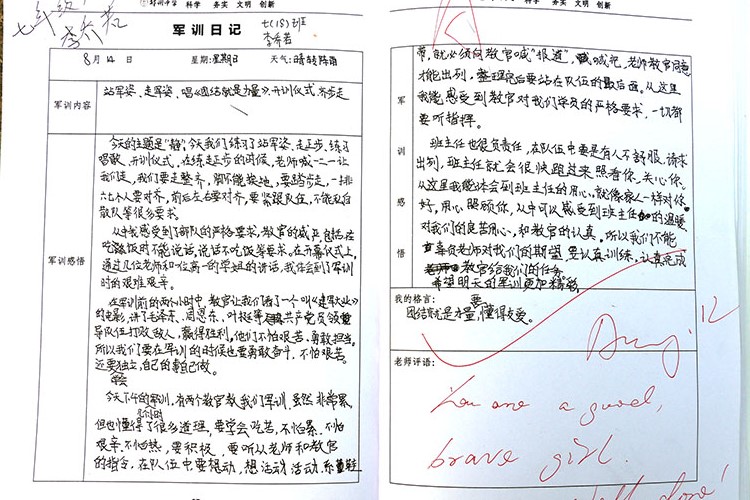 七年级
李希若
科学 务实 文明 创新
军训日记
七(18)班
李希若
8月14日 星期:星期日 天气:晴转阵雨
军训内容
站军姿、走军姿、唱《团结就是力量》、开训仪式、齐步走
军训感悟
今天的主题是"静",今天我们练习了站军姿、走正步、练习
唱歌、开训仪式,在练走正步的时候,老师喊一二一让
我们走,我们要走整齐,脚不能挨地,要踏步走,一排
六七个人要对齐,前后左右要对齐,要紧跟队伍,不能私自
散队等很多要求。
从中我感受到了部队的严格要求,教官的威严,包括在
吃饭时不能说话,说话不吃饭等要求。在开幕仪式上,
通过几位老师和一位高一的学姐的讲话,我体会到了军训
时的艰难艰辛。
在军训前的两个小时中,教官让我们看了一个叫《建军大业》
的电影,讲了毛泽东、周恩来、叶挺等共产党员领
导队伍打败敌人,赢得胜利,他们不怕艰苦,勇敢担当。
所以我们要在军训的时候也要勇敢奋斗,不怕艰苦。
还要独立,自己的事自己做。
今天下午的军训,有两个教官教我们军训,虽然非常累,
但也懂得了很多道理,要学会吃苦,不怕累、不怕
艰辛、不怕热,要积极,要听从老师和教官
的指令,在队伍中要想动,想活动活动,系
带,就必须向教官喊"报道",喊完,老师教官同意
才能出列,整理完后要站在队伍的最后面。从这里
我能感受到教官对我们学员的严格要求,一切都
要听指挥。
班主任也很负责任,在队伍中要是有人不舒服,请求
出列,班主任就会很快跑过来照看你、关心你。
从这里我能体会到班主任的用心,就像家人一样对你
好,用心照顾你,从中可以感受到班主任的温暖
对我们的良苦用心,和教官的认真。所以我们不能
辜负老师对我们的期望,要认真训练,认真完成
教官给我们的任务。
希望明天的军训更加精彩
军训感悟
我的格言:
团结就是力量,要懂得友爱。
老师评语:
You are a good,
brave girl.